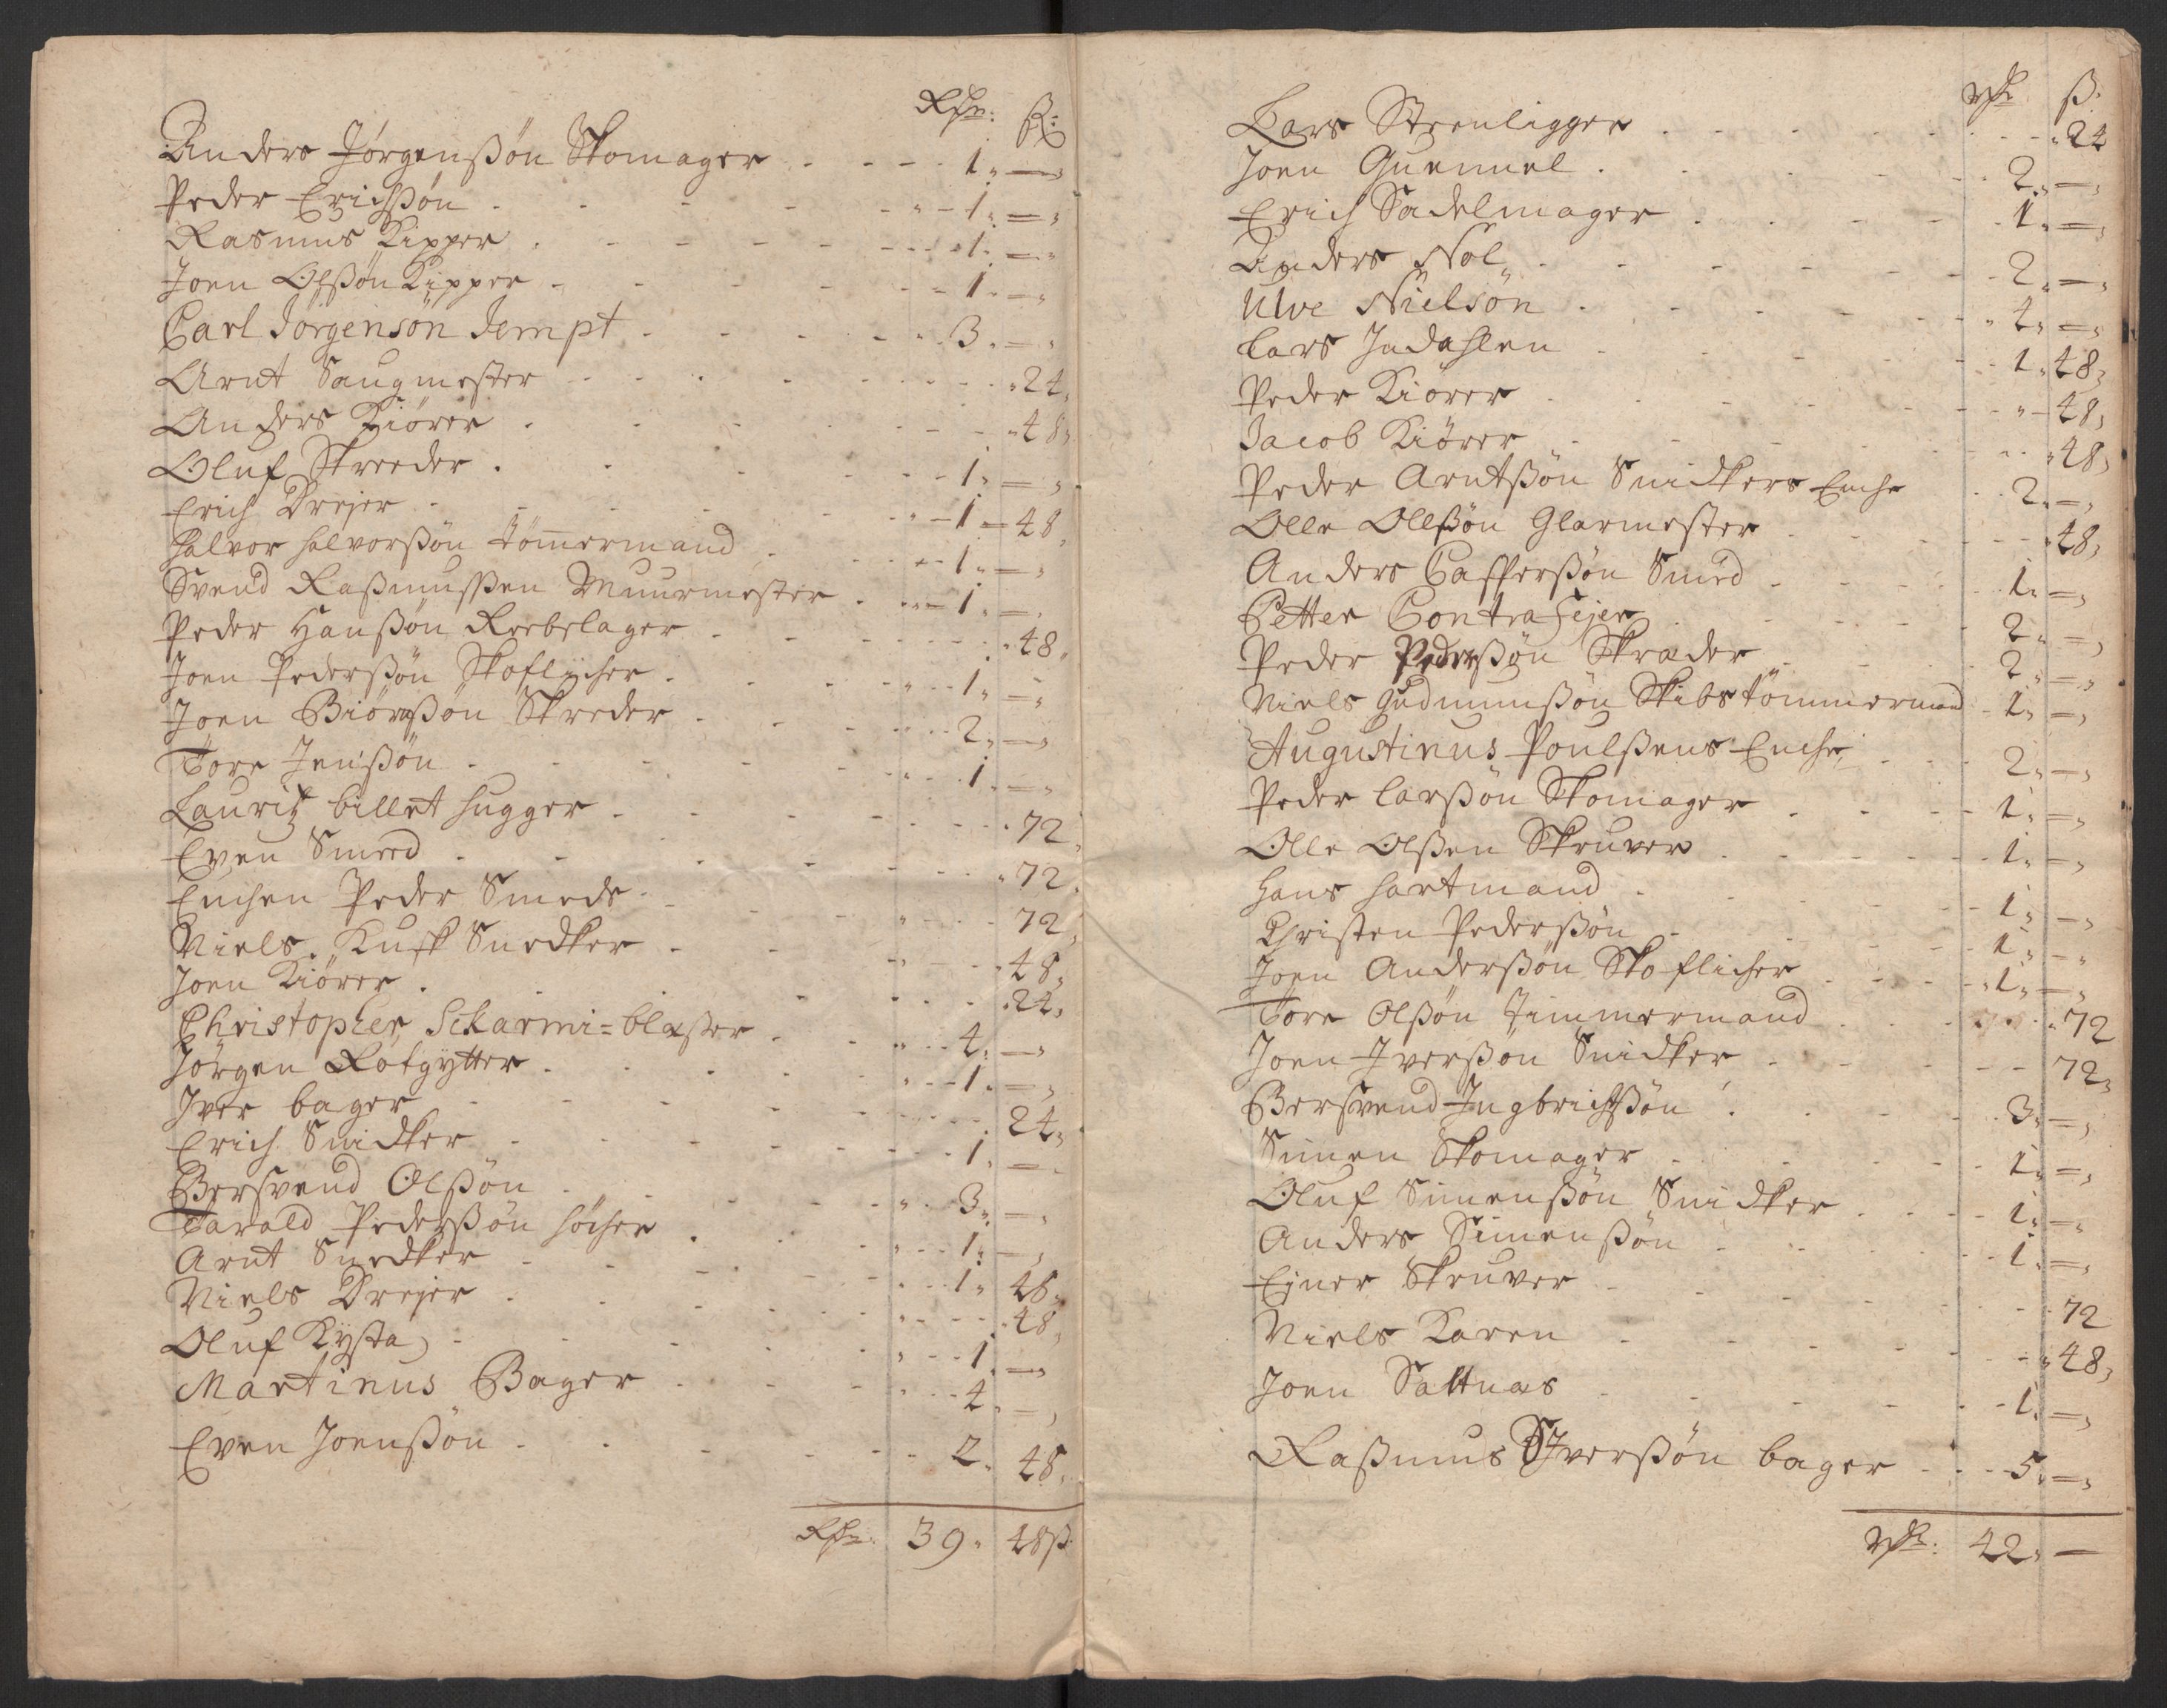 Rdr: ß:
Anders Jörgensßön Skomager . . - - - 1. —
Peder Erichßön . - - - - 1. =
Rasmus Kipper . - - - - 1. =
Joen Olßön Kipper - - - - 1. =
Carl Jörgensön Jempt - - - 3. =
Arnt Saugmester - - - - 24.
Anders Kiörer . - - - 48.
Oluf Skreder . - - - 1. =
Erich Dreyer - - - - 1 = 48.
Halvor Halvorßön Tömmermand - - 1. =
Svend Raßmußen Muurmester . - - 1. =
Peder Hanßön Reebslager - - - 48.
Joen Pederßön Skoflicher . - - 1. =
Joen Biörnßön Skreder - - - 2. =
Tore Jenßön . - - - 1. =
Lauritz billet hugger . - - - 72.
Even Smed . - - - 72.
Enchen Peder Smeds . - - - 72.
Niels Kusk Snedker - - - 48.
Joen Kiörer . - - - 24.
Christopher Skarmi=blaßer . - - 4. =
Jörgen Rotgytter . - - - 1. =
Iver bager - - - 24.
Erich Snidker - - - 1. =
Bersvend Olßön - - - 3. =
Tarald Pederßön höcher . - - 1. =
Arnt Snedker - - - 1. 48.
Niels Dreyer . - - - 48.
Oluf Kysta - - - 1. =
Martinus Bager - - - 4. =
Even Joenßön - - - 2. 48.
Rdr: 39. 48ß.
rdr ß.
Lars Steenligger . - - - 24
Joen Quennel . - - 2. =
Erich Sadelmager . - - 1. =
Anders Nol . - - 2. =
Ulve Nielsön . - - 4. =
Lars Indahlen - - 1. 48.
Peder Kiörer - - - 48.
Jacob Kiörer - - - 48.
Peder Arntßön Snidkers Enche - 2. =
Olle Olleßön Glarmester - - 48.
Anders Casperßön Smed - - 1. =
Petter Contrafejer - - 2. =
Peder Pederßön Skræder - - 2. =
Niels Gudmunßön Skibstömmermand - 1. =
Augustinus Poulßens Enche - - 2. =
Peder Larßön Skomager - - 1. =
Olle Olßen Skruver - - 1. =
Hans Hartmand - - 1. =
Christen Pederßön - - 1. =
Joen Anderßön Skoflicher - - 1. =
Tore Olßön Timmermand - - 72
Joen Iverßön Snidker - - 72.
Bersvend Ingbrichtßön . - - 3. =
Simen Skomager - - 1. =
Oluf Simenßön Snidker - - 1. =
Anders Simenßön - - 1. =
Ejner Skruver - - 72
Niels Karen - - 48.
Joen Saltnas - - 1. =
Raßmus Iverßön bager - - 5. =
rdr: 42. —